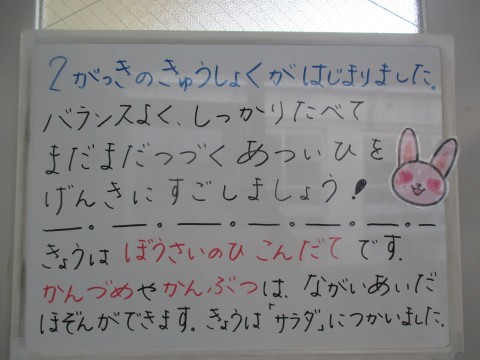 2がっきのきゅうしょくがはじまりました。
バランスよく、しっかりたべて
まだまだつづくあついひを
げんきにすごしましょう!
きょうは ぼうさいのひ こんだて です。
かんづめやかんぶつは、ながいあいだ
ほぞんができます。きょうは「サラダ」につかいました。